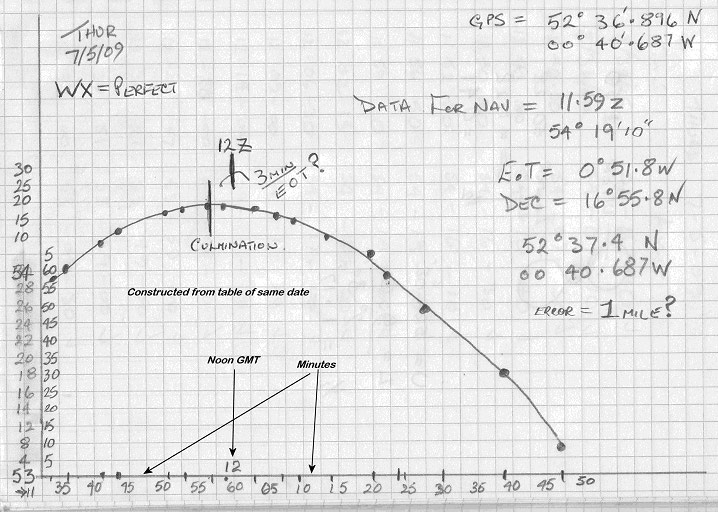 THUR
7/5/09
WX = PERFECT
GPS = 52° 36'.896 N
00° 40'.687 W
DATA FOR NAV = 11.59 Z
54° 19' 10"
E.T = 0° 51.8 W
DEC = 16° 55.8 N
52° 37.4 N
00 40.687 W
ERROR = 1 MILE?
12Z
3 MIN
EOT?
CULMINATION.
Constructed from table of same date
Noon GMT
Minutes
12
30
25
20
15
10
5
54 60
28 55
26 50
24 45
22 40
20 35
18 30
16 25
14 20
12 15
8 10
4 5
53
→11 35 40 45 50 55 60 05 10 15 20 25 30 36 40 45 50